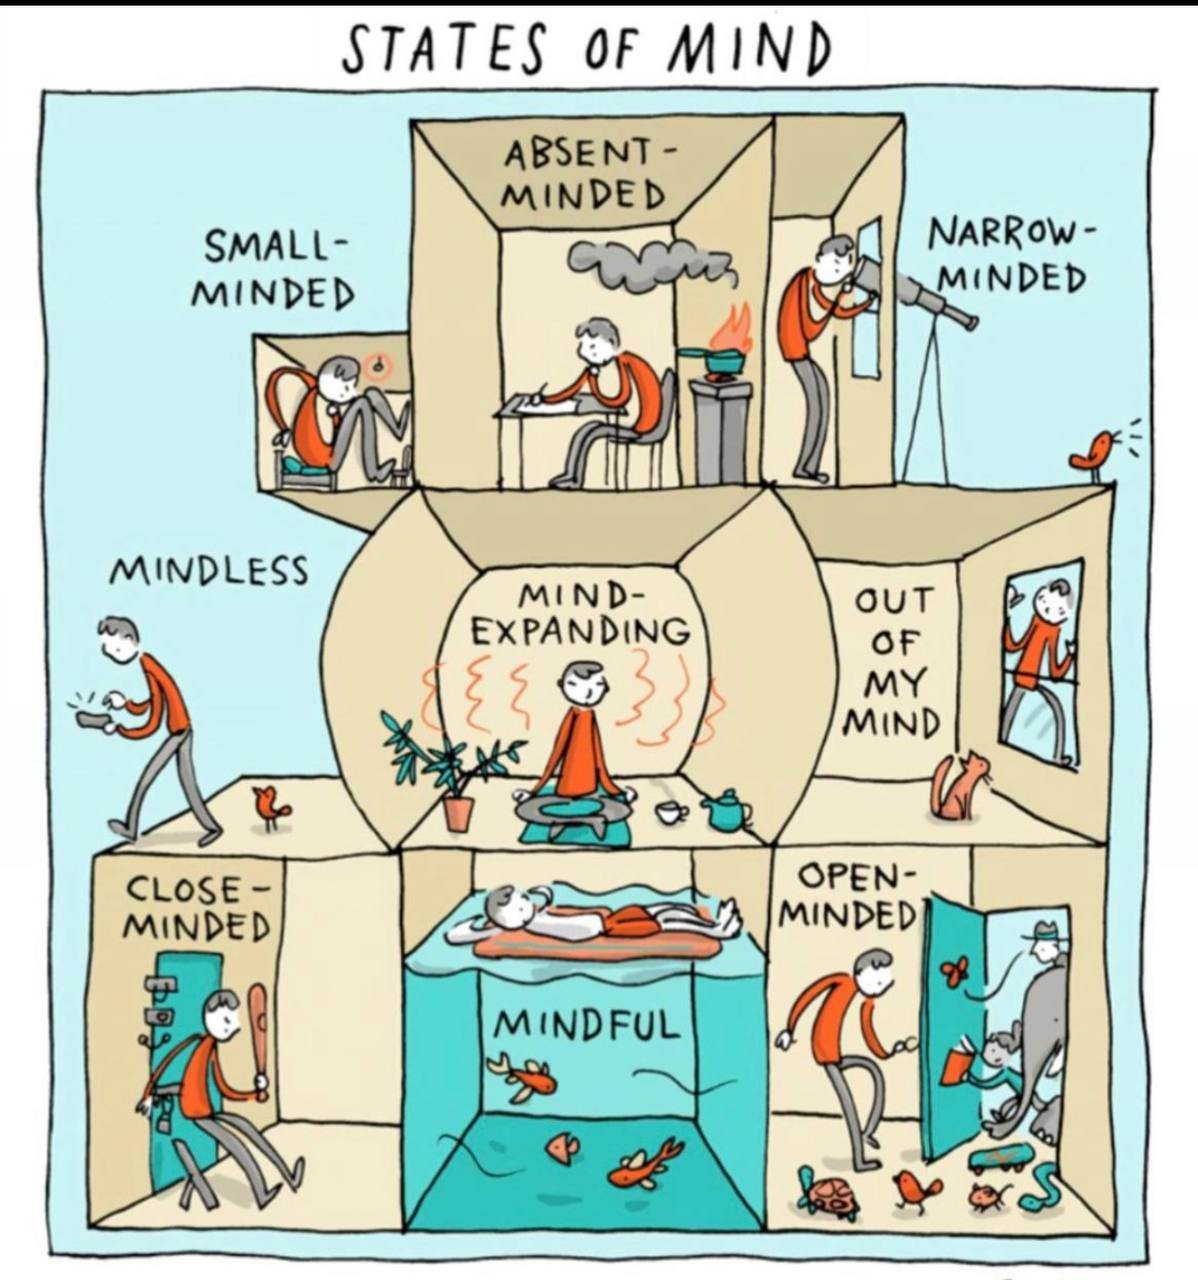 STATES OF MIND
ABSENT-
MINDED
SMALL-
MINDED
NARROW-
MINDED
MINDLESS
MIND-
EXPANDING
OUT
OF
MY
MIND
CLOSE-
MINDED
MINDFUL
OPEN-
MINDED